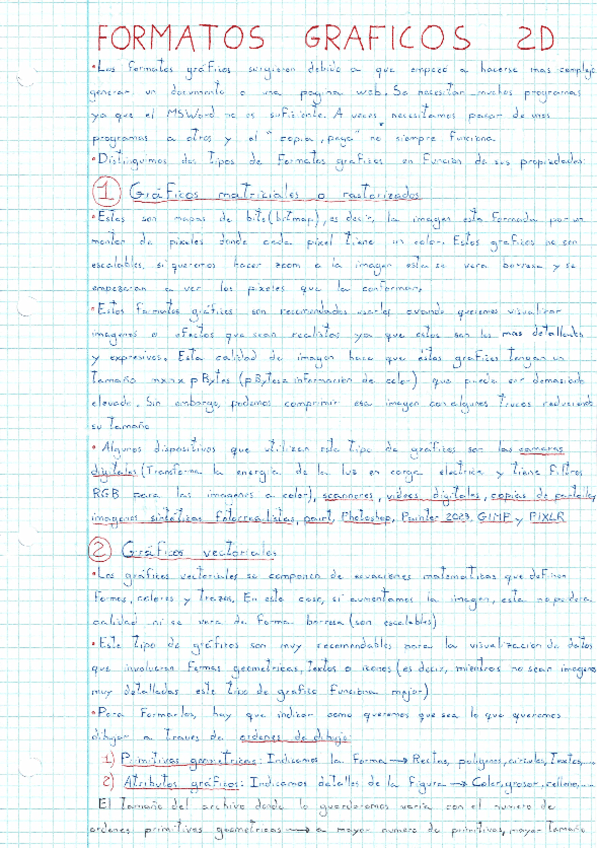 FORMATOS GRAFICOS 2D
• Los formatos gráficos surgieron debido a que empezo a hacerse mas complejo
generar un documento o una pagina web. Se necesitan muchos programas
ya que el MSWord no es suficiente. A veces necesitamos pasar de unos
programas a otros y el "copia, pega" no siempre funciona.
• Distinguimos dos tipos de formatos graficos en funcion de sus propiedades:
1 Gráficos matriciales o rasterizados
• Estos son mapas de bits (bitmap), es decir, la imagen esta formada por un
monton de pixeles donde cada pixel tiene un color. Estos graficos no son
escalables, si queremos hacer zoom a la imagen esta se vera borrosa y se
empezaran a ver los pixeles que la conforman.
• Estos formatos gráficos son recomendados usarlos cuando queremos visualizar
imagenes o efectos que sean realistas ya que estos son los mas detallados
y expresivos. Esta calidad de imagen hace que estos graficos tengan un
tamaño nxnx pBytes (pBytes=informacion de color) que puede ser demasiado
elevado. Sin embargo, podemos comprimir esa imagen con algunos trucos reduciendo
su tamaño
• Algunos dispositivos que utilizan este tipo de gráficos son las camaras
digitales (Transforma la energia de la luz en carga electrica y tiene filtros
RGB para las imagenes a color), scanneres, videos digitales, copias de pantallas,
imagenes sintéticas fotorrealistas, paint, Photoshop, Painter 2023, GIMP y PIXLR
2 Gráficos vectoriales
• Los gráficos vectoriales se componen de ecuaciones matematicas que definen
formas, colores y trazos. En este caso, si aumentamos la imagen, esta no perdera
calidad ni se vera de forma borrosa (son escalables)
• Este tipo de gráficos son muy recomendables para la visualización de datos
que involucran formas geometricas, textos o iconos (es decir, mientras no sean imagenes
muy detalladas este tipo de grafico funciona mejor)
• Para formarlos, hay que indicar como queremos que sea lo que queremos
dibujar a traves de ordenes de dibujo:
1) Primitivas geometricas: Indicamos la forma → Rectas, poligonos, circulos, Textos,...
2) Atributos gráficos: Indicamos detalles de la figura → Color, grosor, relleno,...
El tamaño del archivo donde lo guardaremos varia con el numero de
ordenes primitivas geometricas → a mayor numero de primitivas, mayor tamaño